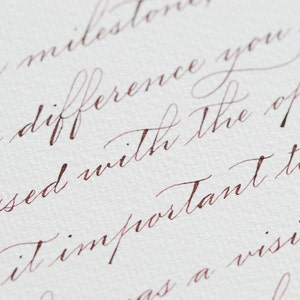 milestone,
difference you
with the
it important
was a